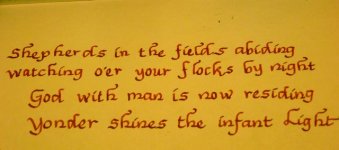 Shepherds in the fields abiding
watching o'er your flocks by night
God with man is now residing
Yonder shines the infant Light